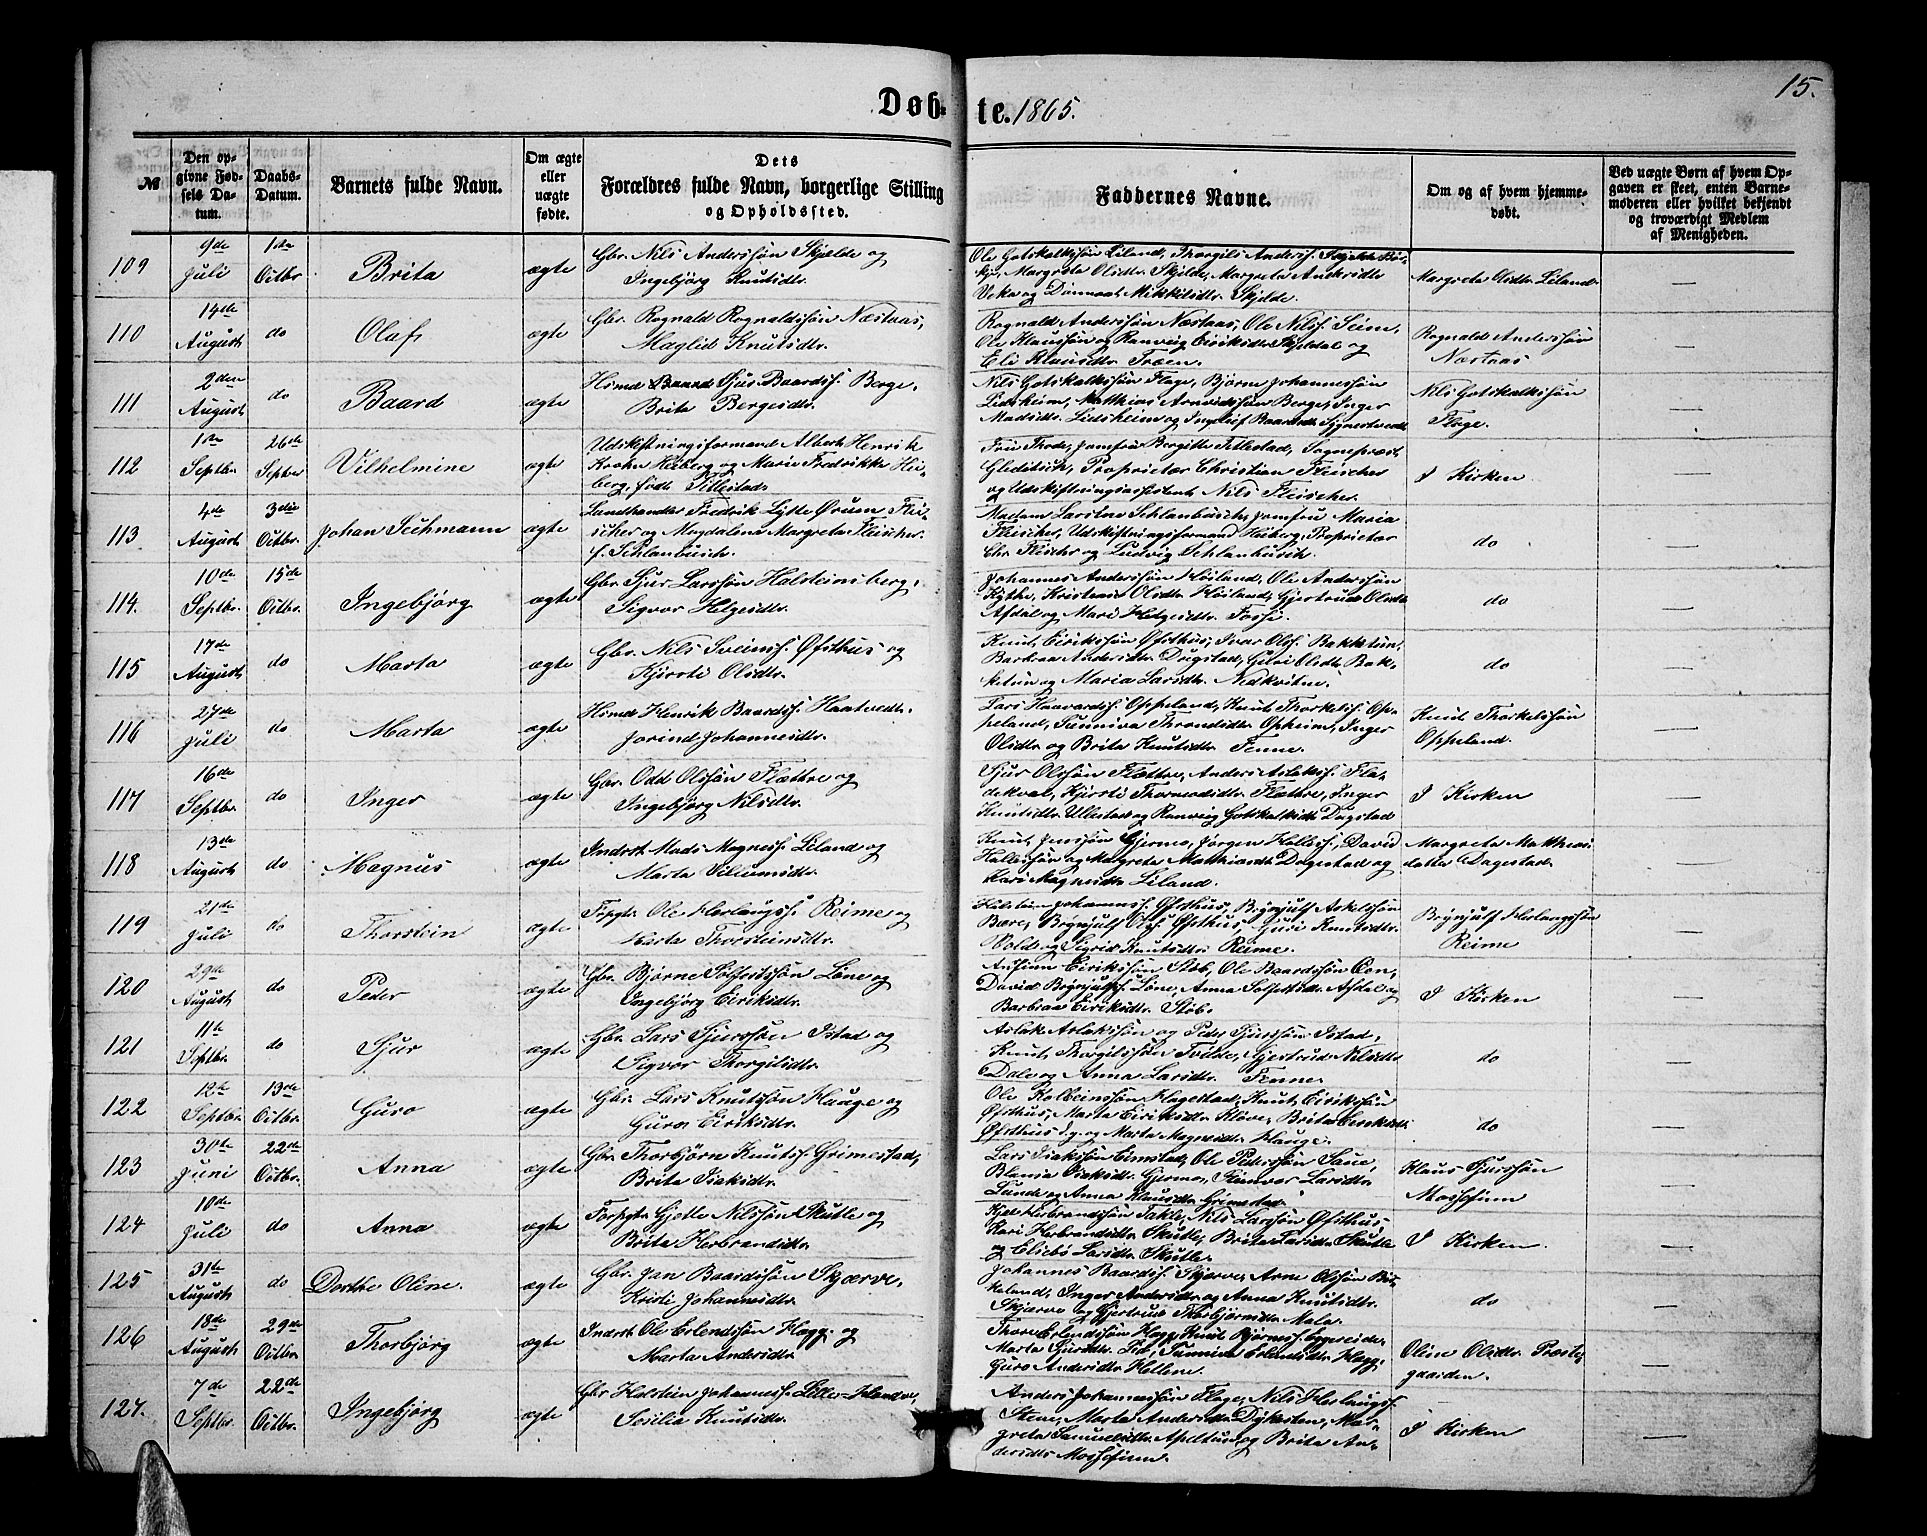 15.
Døbte. 1865.
№
Den opgivne Fødsels Datum.
Daabs-Datum.
Barnets fulde Navn.
Om ægte eller uægte fødte.
Dets Forældres fulde Navn, borgerlige Stilling og Opholdssted.
Faddernes Navne.
Om og af hvem hjemmedøbt.
Ved uægte Børn af hvem Opgaven er skeet, enten Barnemoderen eller hvilket bekjendt og troværdigt Medlem af Menigheden.
109
9de Juli
1da Octbr
Brita
ægte
Gbr. Nils Anderssøn Skjelde og
Ingebjörg Knutsdtr.
Ole Gotskalkssøn Liland, Thorgils Anderss.
Margreta Olsdtr. Skjelde, Margreta Andersdtr.
Veka og Mikkelsdtr. Skjelde.
Margreta Olsdtr. Liland.
—
110
14de August
do
Olaf
ægte
Gbr. Rognald Rognaldssøn Næstaas,
Maglid Knutsdtr.
Rognald Anderssøn Næstaas, Ole Nilss. Seim,
Ole Klaussøn og Ranveig Eiriksdtr. Skjeldal og
Eli Klausdtr. Træen.
Rognald Anderssøn
Næstaas
—
111
2den August
do
Baard
ægte
Hsmd Sjur Baardss. Berge,
Brita Bergesdtr.
Nils Gotskalkssøn Flage, Bjørne Johannessøn
Lidsheim, Matthias Arnvedssøn Berge, Inger
Madsdtr. Lidsheim og
Nils Gotskalkssøn
Flage.
—
112
1da Septbr.
26de Septbr
Vilhelmine
ægte
Udskiftningsformand Albert Henrik
Krohn Heiberg og Marie Fredrikke Heiberg,
født Titlestad.
Fru Thode, Jomfru Bergitte Titlestad, Sogneprest
Gleditsch, Proprietær Christian Fleischer
og Udskiftningsassistent Nils Fleischer.
I Kirken
—
113
4de August
3die Octbr.
Johan Sechmann
ægte
Landhandler Fredrik Lytte Ørum Fleischer
og Magdalena Margreta Fleischer
f. Schlanbusch.
Madam Schlanbusch, Jomfru Maria
Fleischer, Udskiftningsformand Heiberg, Proprietær
Chr. Fleischer og Ludvig Schlanbusch.
do
—
114.
10de Septbr.
15de Octbr.
Ingebjörg
ægte
Gbr. Sjur Larssøn Halsteinsberg,
Sigvor Helgesdtr.
Johannes Anderssøn Høiland, Ole Anderssøn
Kyte, Olsdtr. Høiland, Gjertrud Olsdtr.
Afdal og Mari Helgesdtr. Fosse.
do
—
115
17de August
do
Marta
ægte
Gbr. Nils Sveinss. Øfsthus og
Kjersti Olsdtr.
Knut Eirikssøn Øfsthus, Ivar Olss. Bakketun,
Barbraa Andersdtr. Dugstad, Guri Olsdtr. Bakketun
og Maria Larsdtr. Nedkvitne.
do
—
116
27de Juli
do
Marta
ægte
Hsmd Henrik Baardss. Haatvedt,
Jorind Johannesdtr.
Lars Haavardss. Oppeland, Knut Thorkelss. Oppeland,
Sunniva Throndsdtr. Opheim, Inger
Olsdtr. og Brita Knutsdtr. Fenne.
Knut Thorkelssøn
Oppeland.
—
117
16de Septbr.
do
Inger
ægte
Gbr. Odd Olssøn Flæthre og
Ingebjörg Nilsdtr.
Sjur Olssøn Flæthre, Anders Aslakss. Fladekval,
Kjersti Thormodsdtr. Flæthre, Inger
Knutsdtr. Ullestad og Ranveig Gotskalksdtr. Dagstad
I Kirken
—
118
13de August
do
Magnus
ægte
Inderst Mads Magness. Liland og
Marta Viliumsdtr.
Knut Jenssøn Gjerme, Jørgen Hellss., David
Hallessøn og Margreta Matthiasdtr. Dagestad og
Kari Magnesdtr. Liland.
Margreta Matthiasdatter
Dagestad.
—
119
21de Juli
do
Thorstein
ægte
Forpgtr. Ole Herlaugss. Reime og
Marta Thorsteinsdtr.
Halstein Johanness. Øfsthus, Brynjulf Askelssøn
Børe, Brynjulf Olss. Øfsthus, Guri Knutsdtr.
Vold og Sigrid Knutsdtr. Reime.
Brynjulf Herlaugssøn
Reime
—
120
29de August
do
Peder
ægte
Gbr. Bjørne Sølfestssøn Løne og
Ingebjörg Eiriksdtr.
Anfinn Eirikssøn Støb, Ole Baardssøn Øen,
David Brynjulfss. Løne, Anna Sølfestsdtr. Afdal og
Barbraa Eiriksdtr. Støb.
I Kirken
—
121
11te Septbr.
do
Sjur
ægte
Gbr. Lars Sjurssøn Istad og
Sigvor Thorgilsdtr.
Aslak Aslakssøn og Peder Sjurssøn Istad,
Knut Thorgilssøn Tvilde, Gjertrud Nilsdtr.
Dal og Anna Larsdtr. Fenne.
do
—
122
12te Septbr.
13de Octbr.
Guro
ægte
Gbr. Lars Knutssøn Hauge og
Guro Eiriksdtr.
Ole Kolbeinssøn Flagestad, Knut Eirikssøn
Øfsthus, Marta Eiriksdtr. Kløve, Brita Eiriksdtr.
Øfsthus d.y. og Marta Magnesdtr. Hauge.
do
—
123
30te Juni
22de Octbr.
Anna
ægte
Gbr. Thorbjørn Knutss. Grimestad,
Brita Isaksdtr.
Lars Isakssøn Eimstad, Ole Pederssøn Saue,
Isaksdtr. Gjerme, Larsdtr.
Lunde og Anna Klausdtr. Grimestad
Klaus Sjurssøn
Mossefinn
—
124
10de Juli
do
Anna
ægte
Forpgtr. Gjelle Nilssøn Skutle og
Brita Herbrandsdtr.
Kjel Herbrandssøn Takle, Nils Larssøn Øfsthus,
Kari Herbrandsdtr. Skutle, Brita Larsdtr. Skutle
og Elisebø Larsdtr. Skutle.
I Kirken.
—
125
31te August
do
Dorthe Oline.
ægte
Gbr. Jan Baardssøn Skjærve,
Kristi Johannesdtr.
Johannes Baardss. Skjerve, Arne Olssøn Birkeland,
Inger Andersdtr. og Anna Knutsdtr.
Skjærve og Gjertrud Thorbjørnsdtr. Mala.
do
—
126
18de August
29de Octbr.
Thorbjörg
ægte
Inderst Ole Erlendssøn Hagg og
Marta Andersdtr.
Thore Erlendssøn Hagg, Knut Bjørness. Eggereide,
Marta Sjursdtr. Sunniva Erlendsdtr. Hagg,
Guro Andersdtr. Hellene.
Oline Olsdtr. Prestegaarden.
—
127.
7de Septbr.
22de Octbr.
Ingebjörg
ægte
Gbr. Halstein Johanness. Lille-Lilandre,
Sesilia Knutsdtr.
Anders Johannessøn Flage, Nils Herlaugss.
Steen, Marta Andersdtr. Dykesten, Margreta
Samuelsdtr. Apeltun og Brita Andersdtr.
Mossefinn.
I Kirken
—